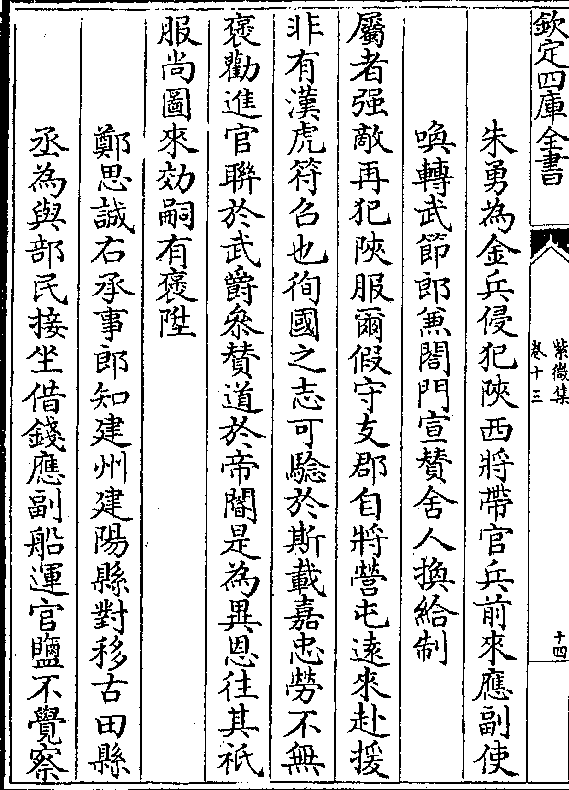 欽定四庫全書
紫微集
卷十三
十四
朱勇為金兵侵犯陜西將帶官兵前來應副使
喚轉武節郎兼閤門宣賛舍人換給制
屬者强敵再犯陜服爾假守支郡自將營屯逺來赴援
非有漢虎符召也徇國之志可驗於斯載嘉忠勞不無
褒勸進官聯於武爵叅賛道於帝閽是為異恩往其祇
服尚圖來効嗣有褒陞
鄭思誠右承事郎知建州建陽縣對移古田縣
丞為與部民接坐借錢應副船運官鹽不覺察